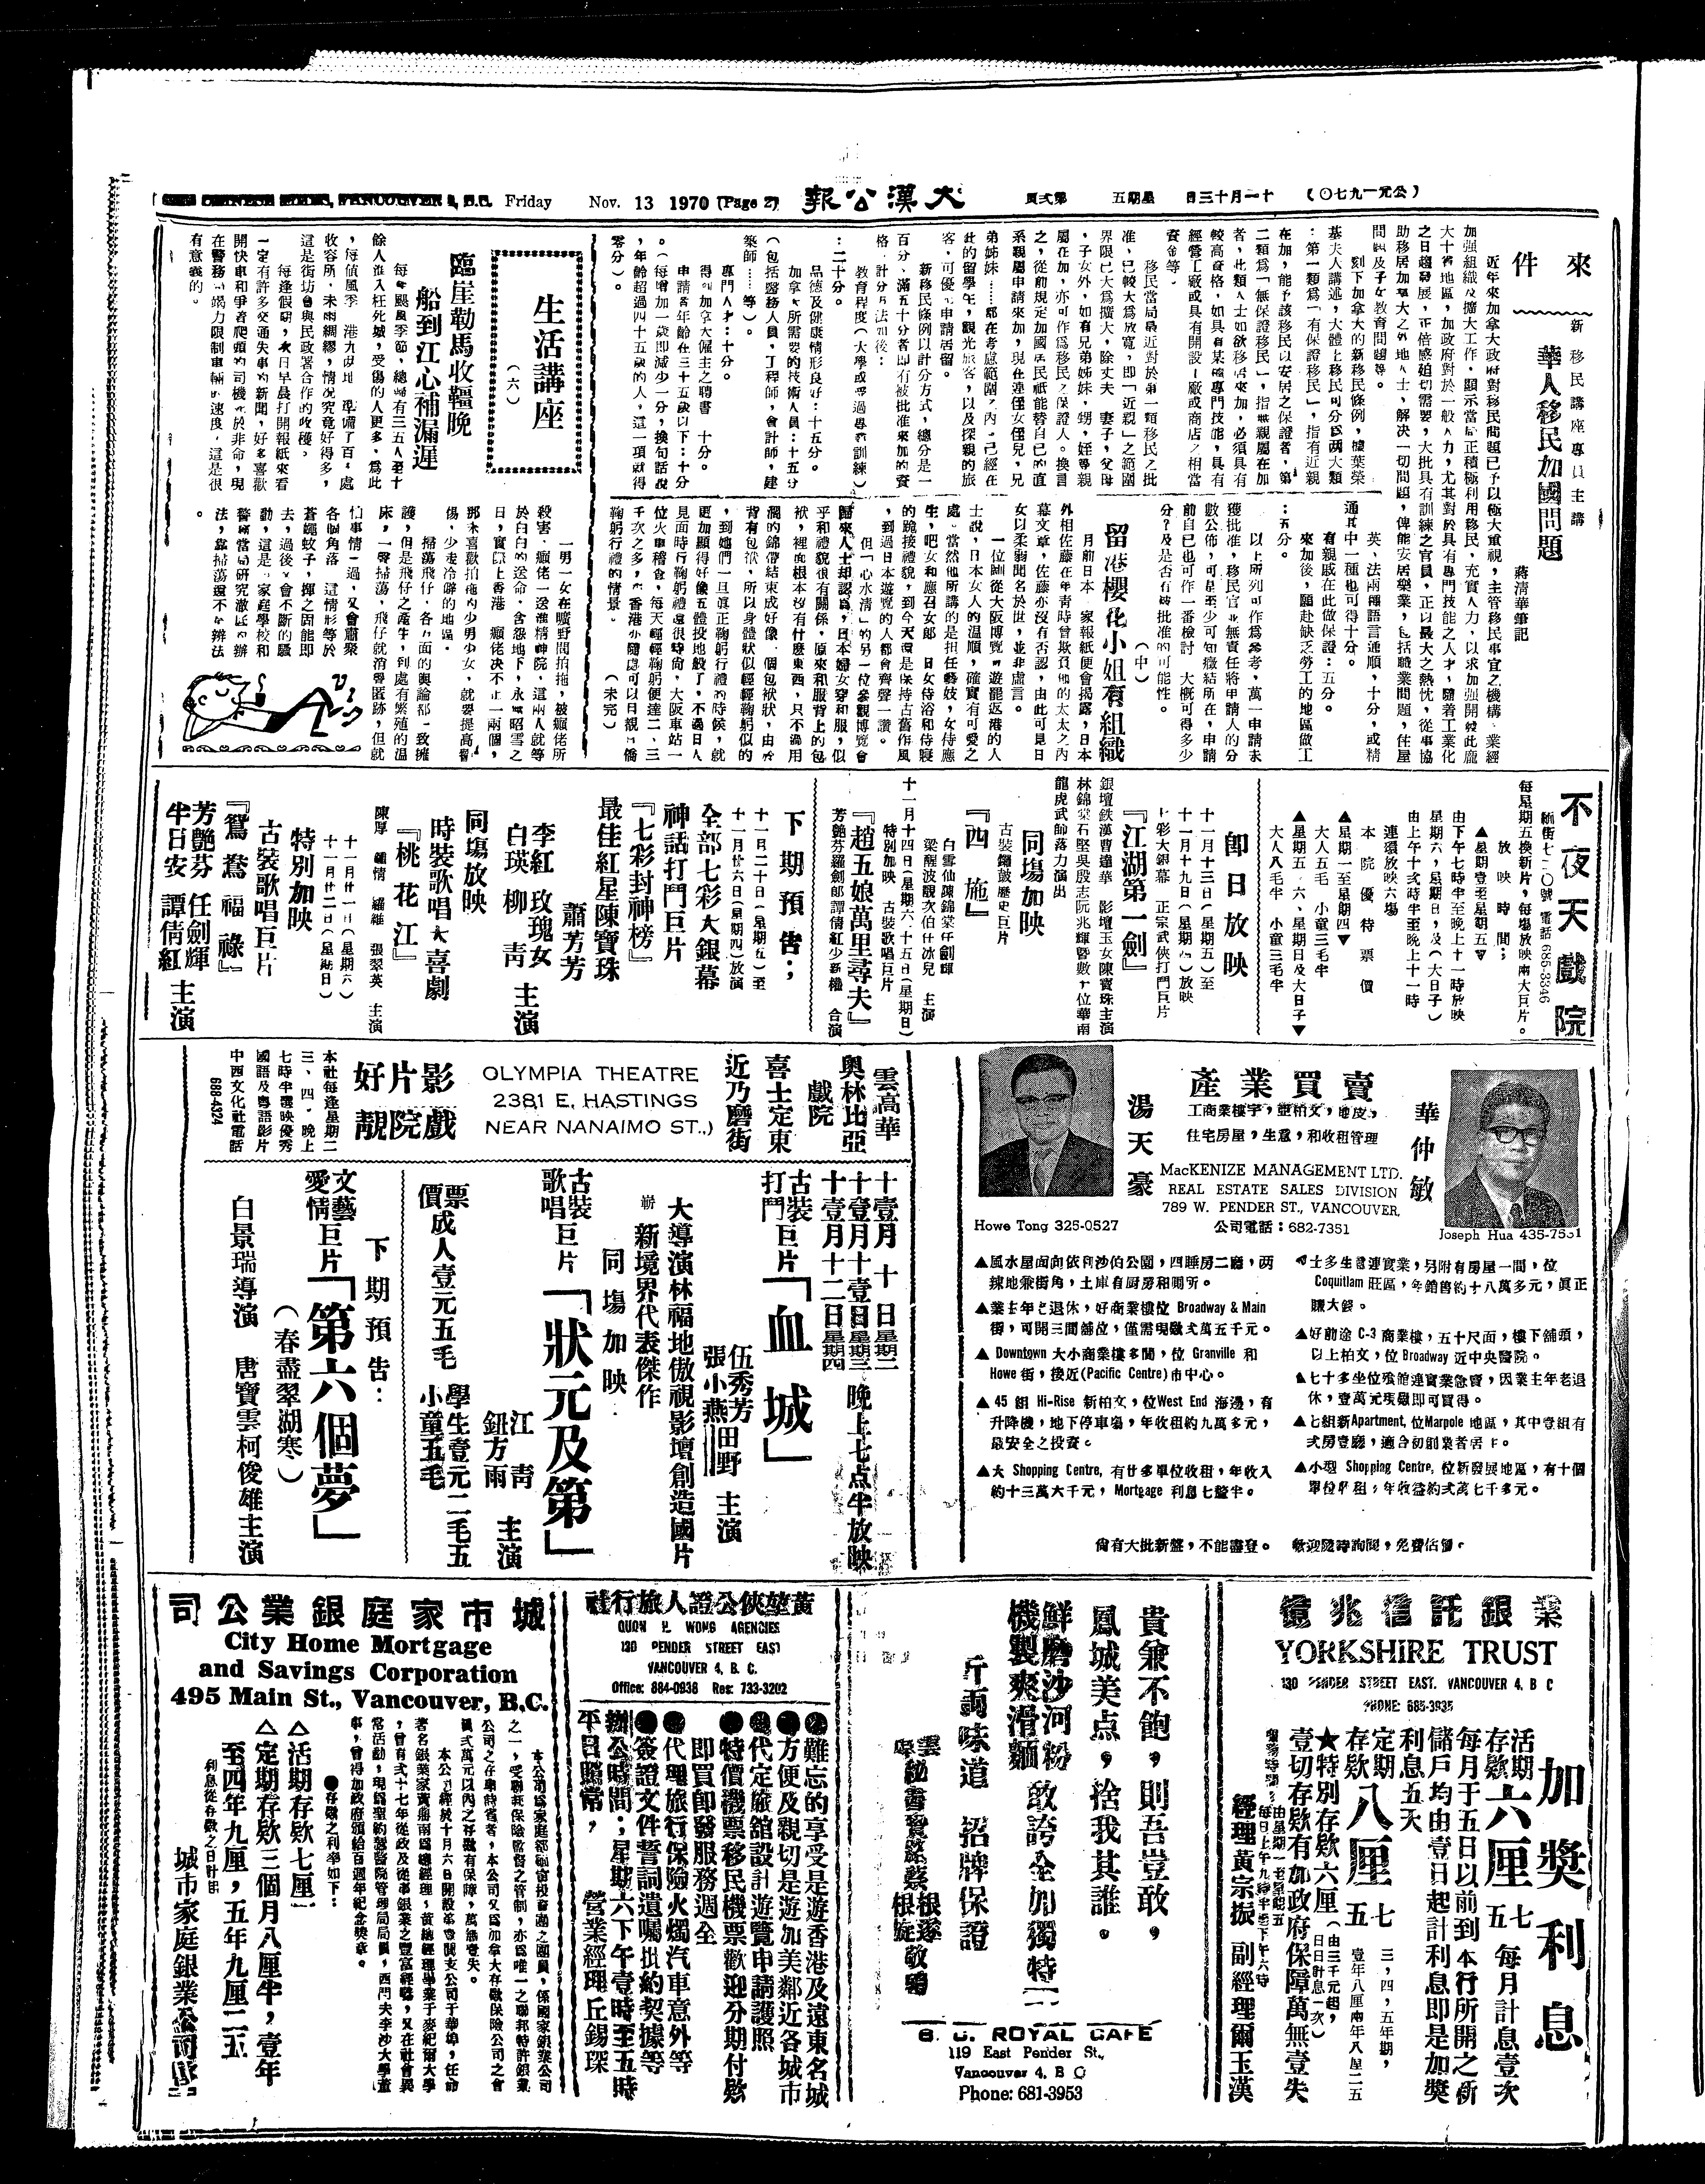 CHINESE TIMES, VANCOUVER 4, B.C. Friday Nov. 13 1970 (Page 2) 大漢公報 第弍頁 星期五 十一月十三日 (公元一九七〇)
來件
新移民講座專員主講
華人移民加國問題
蔣清華筆記
近年來加拿大政府對移民問題已予以極大重視,主管移民事宜之機構,業經
加強組織及擴大工作,顯示當局正積極利用移民,充實人力,以求加強開發此龐
大十省地區,加政府對於一般人力,尤其對於具有專門技能之人才,隨着工業化
之日趨發展,正倍感迫切需要,大批具有訓練之官員,正以最大之熱忱,從事協
助移居加拿大之各地人士,解決一切問題,俾能安居樂業,包括職業問題,住屋
問題及子女教育問題等。
刻下加拿大的新移民條例,據葉榮
基夫人講述,大體上移民可分爲兩大類
:第一類爲「有保證移民」,指有近親
在加,能予該移民以安居之保證者,第
二類爲「無保證移民」,指無親屬在加
者,此類人士如欲移居來加,必須具有
較高資格,如具有某種專門技能,具有
經營工廠或具有開設工廠或商店之相當
資金等。
移民當局最近對於第一類移民之批
准,已較大爲放寬,即「近親」之範圍
界限已大爲擴大,除丈夫 妻子,父母
,子女外,如有兄弟姊妹,甥,姪等親
屬在加,亦可作爲移民之保證人。換言
之,從前規定加國居民祇能替自己的直
系親屬申請來加,現在連侄女侄兒,兄
弟姊妹……都在考慮範圍之內,已經在
此的留學生,觀光旅客,以及探親的旅
客,可優先申請居留。
新移民條例以計分方式,總分是一
百分,滿五十分者即有被批准來加的資
格,計分方法如後:
教育程度(大學或受過專教訓練)
:二十分。
品德及健康情形良好:十五分。
加拿大所需要的技術人員:十五分
(包括醫務人員,工程師,會計師,建
築師……等)。
專門人才:十分。
得到加拿大僱主之聘書 十分。
申請者年齡在三十五歲以下:十分
。(每增加一歲即減少一分,換句話說
,年齡超過四十五歲的人,這一項就得
零分)。
英、法兩種語言通順,十分,或精
通其中一種也可得十分。
有親戚在此做保證:五分。
來加後,願赴缺乏勞工的地區做工
:五分。
以上所列可作爲參考,萬一申請未
獲批准,移民官並無責任將申請人的分
數公佈,可是至少可知癥結所在,申請
前自己也可作一番檢討 大概可得多少
分?及是否有被批准的可能性。
(中)
留港櫻花小姐有組織
月前日本 家報紙便會揭露,日本
外相佐藤在年靑時曾欺負他的太太之內
幕文章,佐藤亦沒有否認,由此可見日
女以柔弱聞名於世,並非虛言。
一位剛從大阪博覽會遊罷返港的人
士說,日本女人的溫順,確實有可愛之
處。當然他所講的是担任藝妓,女侍應
生,吧女和應召女郎 日女侍浴和侍寢
的跪接禮貌,到今天還是保持古舊作風
,到過日本遊覽的人都會齊聲一讚。
但「心水清」的另一位參觀博覽會
歸來人士却認爲,日本婦女穿和服,似
乎和禮貌很有關係,原來和服背上的包
袱,裡面根本沒有什麼東西,只不過用
濶的錦帶結束成好像一個包袱狀,由於
背有包袱,所以身體狀似輕輕鞠躬似的
,到她們一旦眞正鞠躬行禮的時候,就
更加顯得好像五體投地般了,不過日人
見面時行鞠躬禮還很時尙,大阪車站一
位火車稽查,每天輕輕鞠躬便達二、三
千次之多,在香港亦隨處可以日親日僑
鞠躬行禮的情景。 (未完)
生活講座
(六)
臨崖勒馬收韁晚
船到江心補漏遲
每年颶風季節,總歸有三五人至十
餘人進入枉死城,受傷的人更多,爲此
,每値風季 港九皮地 準備了百多處
收容所,未雨綢繆,情況究竟好得多,
這是街坊會與民政署合作的收穫。
每逢假期,次日早晨打開報紙來看
一定有許多交通失事的新聞,好多喜歡
開快車和爭者爬頭的司機死於非命,現
在警務處竭力限制車輛的速度,這是很
有意義的。
一男一女在曠野間拍拖,被癲佬所
殺害、癲佬一送進精神院,這兩人就等
於白白的送命,含怨地下,永無昭雪之
日,實際上香港 癲佬决不止一兩個,
那未喜歡拍拖的少男少女,就要提高警
惕,少走冷僻的地區。
掃蕩飛仔,各方面的輿論都一致擁
護,但是飛仔之產生,到處有繁殖的溫
床,一聲掃蕩,飛仔就消聲匿跡,但就
怕事情一過,又會蕭聚
各個角落 這情形等於
蒼蠅蚊子,揮之固能即
去,過後又會不斷的騷
動,這是 家庭學校和
警察當局研究澈底的辦
法,靠掃蕩還不是辦法
。
不夜天戲院
緬街七二〇號 電話685-3346
每星期五換新片,每場放映兩大巨片。
放映時間:
▲星期壹至星期五▼
由下午七時半至晚上十一時放映
星期六,星期日,及(大日子)
由上午十弍時半至晚上十一時
連環放映六場
本院優待票價
▲星期一至星期四▼
大人五毛 小童三毛半
▲星期五、六、星期日及大日子▼
大人八毛半 小童三毛半
卽日放映
十一月十三日(星期五)至
十一月十九日(星期四)放映
七彩大銀幕 正宗武俠打鬥巨片
『江湖第一劍』
銀壇鉄漢曹達華 影壇玉女陳寶珠主演
林錦棠石堅吳殷志阮兆輝暨數十位華南
龍虎武師落力演出
同塲加映
古裝鑼鼓歷史巨片
『西施』
白雪仙陳錦棠任劍輝
梁醒波靚次伯任冰兒 主演
十一月十四日(星期六、十五日(星期日)
特別加映 古裝歌唱巨片
『趙五娘萬里尋夫』
芳艷芬羅劍郎譚倩紅少新權 合演
下期預告:
十一月二十日(星期五)至
十一月廿六日(星期四)放演
全部七彩大銀幕
神話打鬥巨片
『七彩封神榜』
最佳紅星陳寶珠
蕭芳芳
李紅 玫瑰女
白瑛 柳靑 主演
同塲放映
時裝歌唱大喜劇
『桃花江』
陳厚 鍾情 羅維 張翠英 主演
十一月廿一日(星期六)
十一月廿二日(星期日)
特別加映
古裝歌唱巨片
『鴛鴦福祿』
芳艷芬 任劍輝
半日安 譚倩紅 主演
產業買賣
工商業樓宇,亞柏文,地皮,
住宅房屋,生意,和收租管理
MacKENIZE MANAGEMENT LTD.
REAL ESTATE SALES DIVISION
789 W. PENDER ST., VANCOUVER,
公司電話:682-7351
湯天豪
Howe Tong 325-0527
華仲敏
Joseph Hua 435-7531
▲風水屋面向依利沙伯公園,四睡房二廳,两
鎅地兼街角,土庫有厨房和厠所。
▲業主年老退休,好商業樓位 Broadway & Main
街,可開三間舖位,僅需現欵弍萬五千元。
▲ Downtown 大小商業樓多間,位 Granville 和
Howe 街,接近(Pacific Centre)市中心。
▲ 45 組 Hi-Rise 新柏文,位West End 海邊,有
升降機,地下停車塲,年收租約九萬多元,
最安全之投資。
▲大 Shopping Centre, 有廿多單位收租,年收入
約十三萬六千元,Mortgage 利息七釐半。
▲士多生意連實業,另附有房屋一間,位
Coquitlam 旺區,年銷售約十八萬多元,眞正
賺大錢。
▲好前途 C-3 商業樓,五十尺面,樓下舖頭,
以上柏文,位 Broadway 近中央醫院。
▲七十多坐位餐館連實業急賣,因業主年老退
休,壹萬元現欵即可買得。
▲七組新Apartment, 位Marpole 地區,其中壹組有
弍房壹廳,適合初創業者居卜。
▲小型 Shopping Centre, 位新發展地區,有十個
單位收租,年收益約弍萬七千多元。
尙有大批新盤,不能盡登。 歡迎隨時詢問,免費估價。
雲高華
奥林比亞戲院
喜士定東
近乃磨街
OLYMPIA THEATRE
2381 E. HASTINGS
NEAR NANAIMO ST.,)
影片好
戲院靚
本社每逢星期二
三、四、晚上
七時半選映優秀
國語及粵語影片
中西文化社電話
688-4324
十壹月十日星期二
十壹月十壹日星期三
十壹月十二日星期四
晚上七点半放映
古裝打鬥巨片「血城」
伍秀芳
張小燕
田野 主演
大導演林福地傲視影壇創造國片
嶄新境界代表傑作
同塲加映
古裝歌唱巨片「狀元及第」
江靑
鈕方雨 主演
票價成人壹元五毛 學生壹元二毛五
小童五毛
下期預告:
文藝愛情巨片「第六個夢」
(春盡翠湖寒)
白景瑞導演 唐寶雲柯俊雄主演
億兆信託銀業
YORKSHIRE TRUST
130 PENDER STREET EAST. VANCOUVER 4, B C
PHONE: 685-3935
加獎利息
活期存欵六厘七五 每月計息壹次
每月于五日以前到本行所開之新
儲戶均由壹日起計利息即是加獎
利息五天
定期存欵八厘七五 三,四,五年期,
壹年八厘兩年八厘二五
★特別存欵六厘(由三千元起,日日計息一次)
壹切存欵有加政府保障萬無壹失
服務時間:由星期一至星期五
每日上午九時半至下午六時
經理黃宗振 副經理爾玉漢
貴兼不飽,則吾豈敢,
鳳城美点,捨我其誰。
鮮磨沙河粉
機製爽滑麵 敢誇全加獨特
斤両味道 招牌保證
B. C. ROYAL CAFE
119 East Pender St.,
Vancouver 4, B C
Phone: 681-3953
黃堃俠公證人旅行社
QUON H. WONG AGENCIES
130 PENDER STREET EAST
VANCOUVER 4, B. C.
Office: 684-0936 Res: 733-3202
●難忘的享受是遊香港及遠東名城
●方便及親切是遊加美鄰近各城市
●代定旅舘設計遊覽申請護照
●特價機票移民機票歡迎分期付欵
即買即發服務週全
●代理旅行保險火燭汽車意外等
●簽證文件誓詞遺囑批約契據等
辦公時間:星期六下午壹時至五時
平日照常, 營業經理丘錫琛
城市家庭銀業公司
City Home Mortgage
and Savings Corporation
495 Main St., Vancouver, B.C.
本公司爲家庭銀業公司
之一,受聯邦保險監督之管制,亦爲唯一之聯邦特許銀業
公司之在卑詩省者,本公司又爲加拿大存欵保險公司之會
員弍萬元以內之存欵有保障,萬無壹失。
本公司經於十月六日開設第壹間支公司于華埠,任命
常活動,現爲聖約翰醫院管理局局員,西門夫李沙大學董
事,曾得加政府頒給百週年紀念獎章。
●存欵之利率如下:
△活期存欵七厘
△定期存欵三個月八厘半,壹年
至四年九厘,五年九厘二五
利息從存欵之日計起
城市家庭銀業公司啓